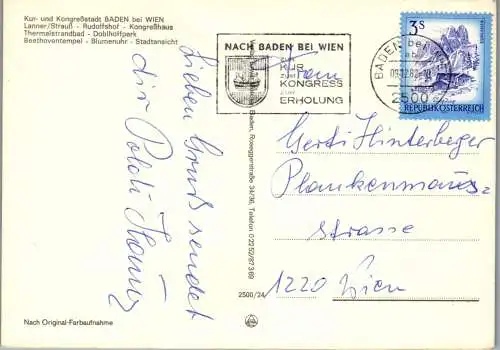 Kur- und Kongreßstadt BADEN bei WIEN
Lanner/Strauß - Rudolfshof - Kongreßhaus
Thermalstrandbad - Doblhoffpark
Beethoventempel - Blumenuhr - Stadtansicht
Lieben Gruß sendet
dir Poldi
NACH BADEN BEI WIEN
ZUR
KUR
ZUM
KONGRESS
ZUR
ERHOLUNG
BADEN bei WIEN
2500
3S
REPUBLIK ÖSTERREICH
Baden, Roseggerstraße 34/36, Telefon 0 22 52/87 3 89
2500/24
Gerti Hinterberger
Strasse
1220 Wien
Nach Original-Farbaufnahme